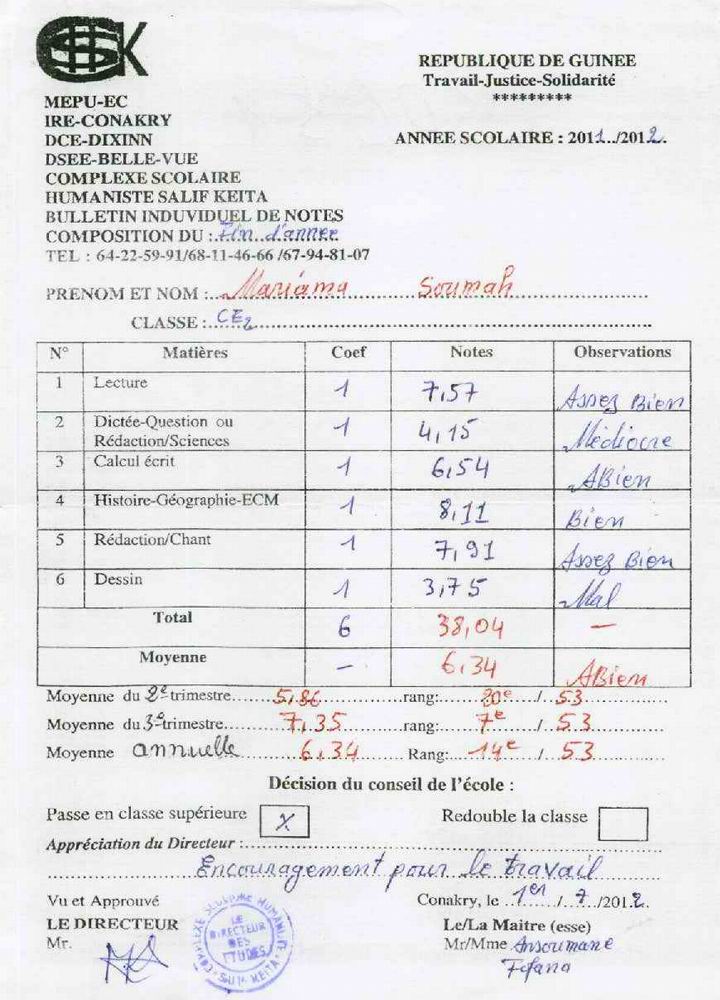 HSK
REPUBLIQUE DE GUINEE
Travail-Justice-Solidarité
*********
MEPU-EC
IRE-CONAKRY
DCE-DIXINN
DSEE-BELLE-VUE
COMPLEXE SCOLAIRE
HUMANISTE SALIF KEITA
BULLETIN INDUVIDUEL DE NOTES
ANNEE SCOLAIRE : 2011../2012.
COMPOSITION DU : Fin d'année
TEL : 64-22-59-91/68-11-46-66 /67-94-81-07
PRENOM ET NOM : Mariama Soumah
CLASSE : CE2
N° Matières Coef Notes Observations
1 Lecture 1 7,57 Assez Bien
2 Dictée-Question ou Rédaction/Sciences 1 4,15 Médiocre
3 Calcul écrit 1 6,54 ABien
4 Histoire-Géographie-ECM 1 8,11 Bien
5 Rédaction/Chant 1 7,91 Assez Bien
6 Dessin 1 3,75 Mal
Total 6 38,04 —
Moyenne – 6,34 ABien
Moyenne du 2e trimestre 5,86 rang: 20e / 53
Moyenne du 3e trimestre 7,35 rang: 7e / 53
Moyenne annuelle 6,34 Rang: 14e / 53
Décision du conseil de l'école :
Passe en classe supérieure X Redouble la classe
Appréciation du Directeur :
Encouragement pour le travail
Vu et Approuvé Conakry, le 1er / 7 /2012.
LE DIRECTEUR Le/La Maitre (esse)
Mr. Mr/Mme Ansoumane
Fofana
LE
DIRECTEUR
DES
ETUDES